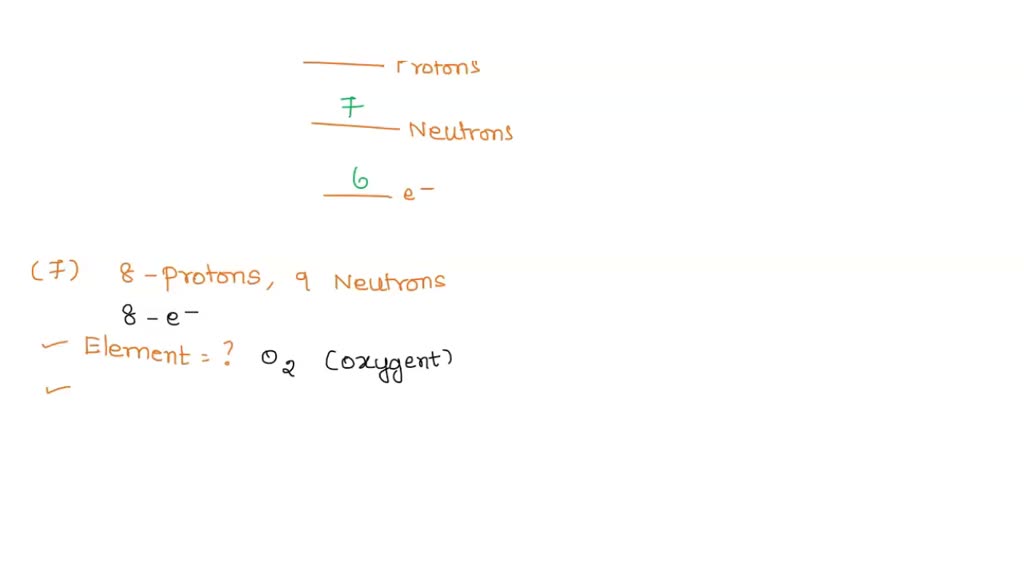 Protons
7
Neutrons
6
e−
(7) 8-protons, 9 Neutrons
8-e−
Element = ? O2 (oxygent)